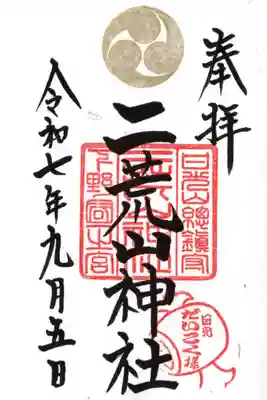 奉拝
日光山總鎮守
二荒山神社
下野國一之宮
日光
だいこく様
令和七年九月五日